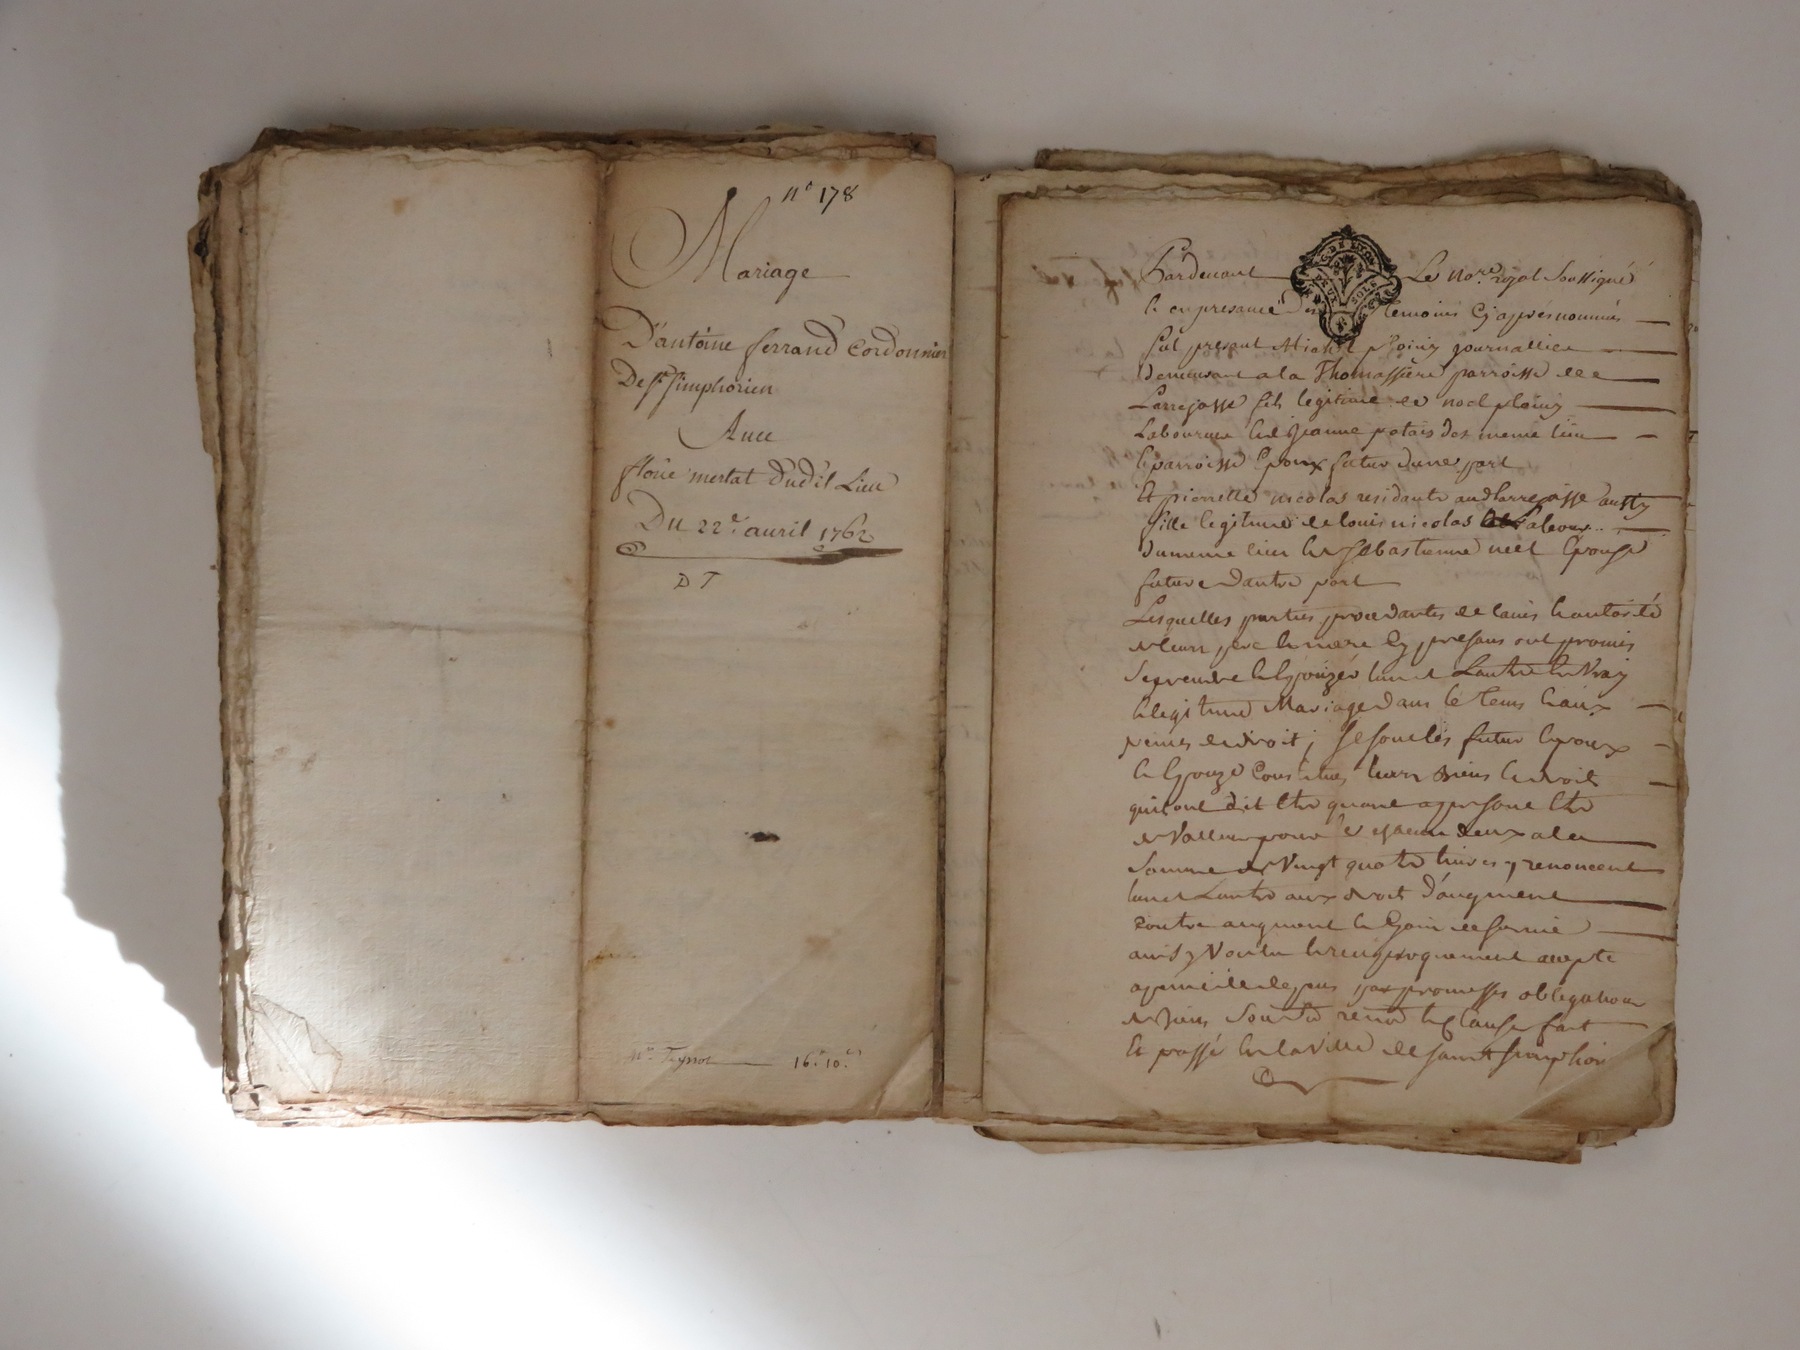 n° 178
Mariage
D'antoine ferrand Cordonnier
De st simphorien
Auec
flôrie mertat dudit Lieu
Du 22e. auril 1762
D T
Me. Teyssot 16s. 10d.
G. DE LYON
SOLS
Pardeuant Le nore. royal soussigné
& en presance des temoins Cy apres nommés
fut present Michel ploiny journallier
demeurant a la Thomassiere parroisse de
Larrajasse fils legitime de noel ploiny
Laboureur & de Jeanne potais des meme lieu
& parroisse Epoux futur dune part
Et pierrette nicolas residante aud Larrajasse aussy
fille legitime de louis nicolas
du meme lieu & de sebastienne neel Epouse
future dautre part
Lesquelles parties procedantes de lauis & autorité
de leurs pere & mere Cy presans ont promis
se prendre & Epouzer lun et Lautre En Vray
& legitime Mariage dans le tems & aux
peines de droit; se sont les futur Epoux
& Epouze Constitués leurs biens & droits
quils ont dit Etre quand a presant Etre
de Valleur pour les chacun deux a la
somme de Vingt quatre liures, renoncent
lun et Lautre aux droit d'augment
Contre augment & Gain de suruie
ainsy Voulu & reciproquement accepté
a peine de depens par promesses obligation
de biens soumis renon & Clause fait
Et passé En la Ville de saint simphorien